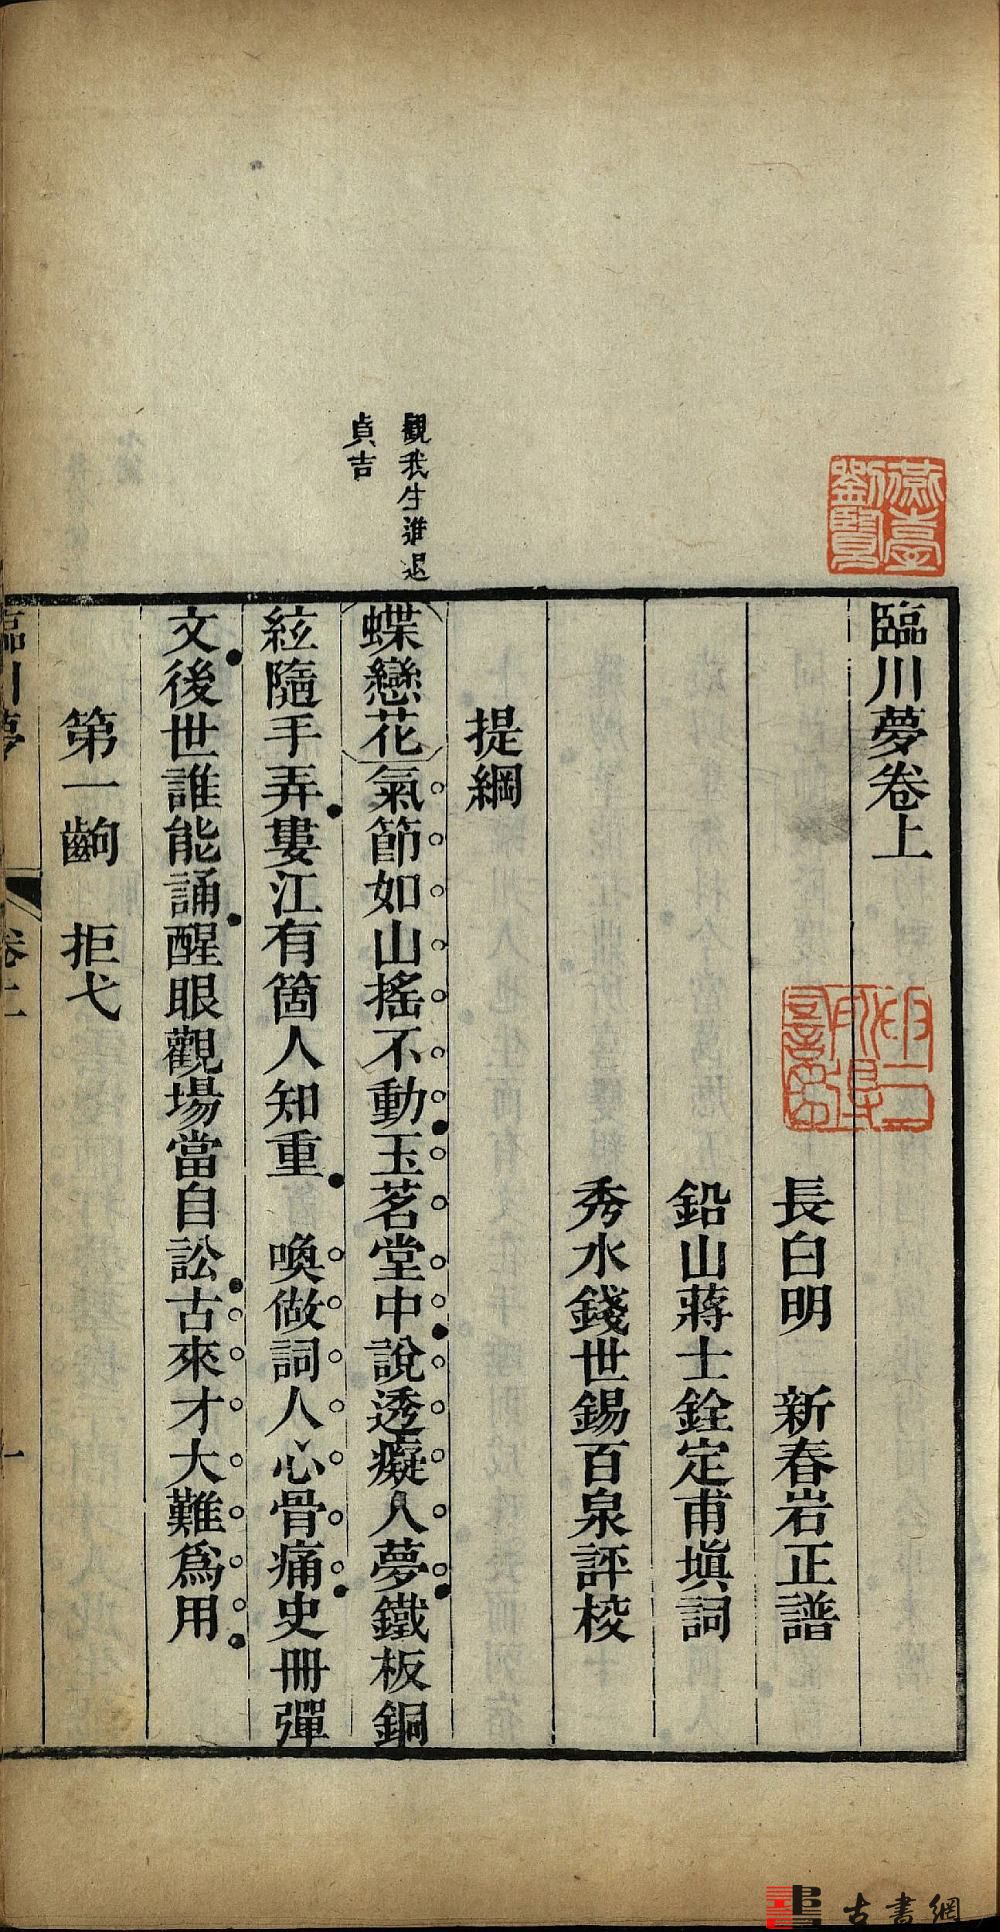 臨川夢卷上
長白明　新春岩正譜
鉛山蔣士銓定甫塡詞
秀水錢世錫百泉評校
提綱
蝶戀花氣節如山搖不動玉茗堂中說透癡人夢鐵板銅
絃隨手弄婁江有箇人知重　喚做詞人心骨痛史冊彈
文後世誰能誦醒眼觀場當自訟古來才大難爲用
第一齣　拒弋
臨川夢
卷上
一
觀我生進退
貞吉
燕臺
劉賢
古書網